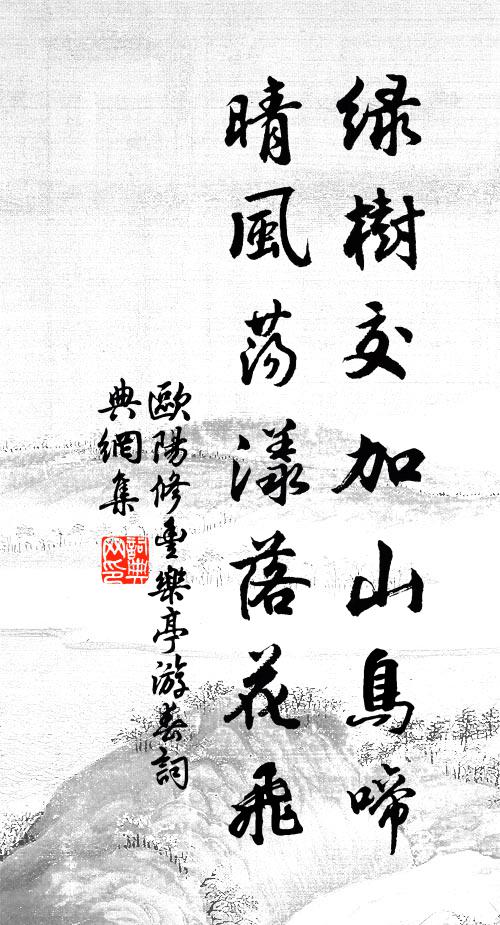 綠樹交加山鳥啼
晴風蕩漾落花飛
歐陽修豐樂亭游春詞
典網集
詞典
网印